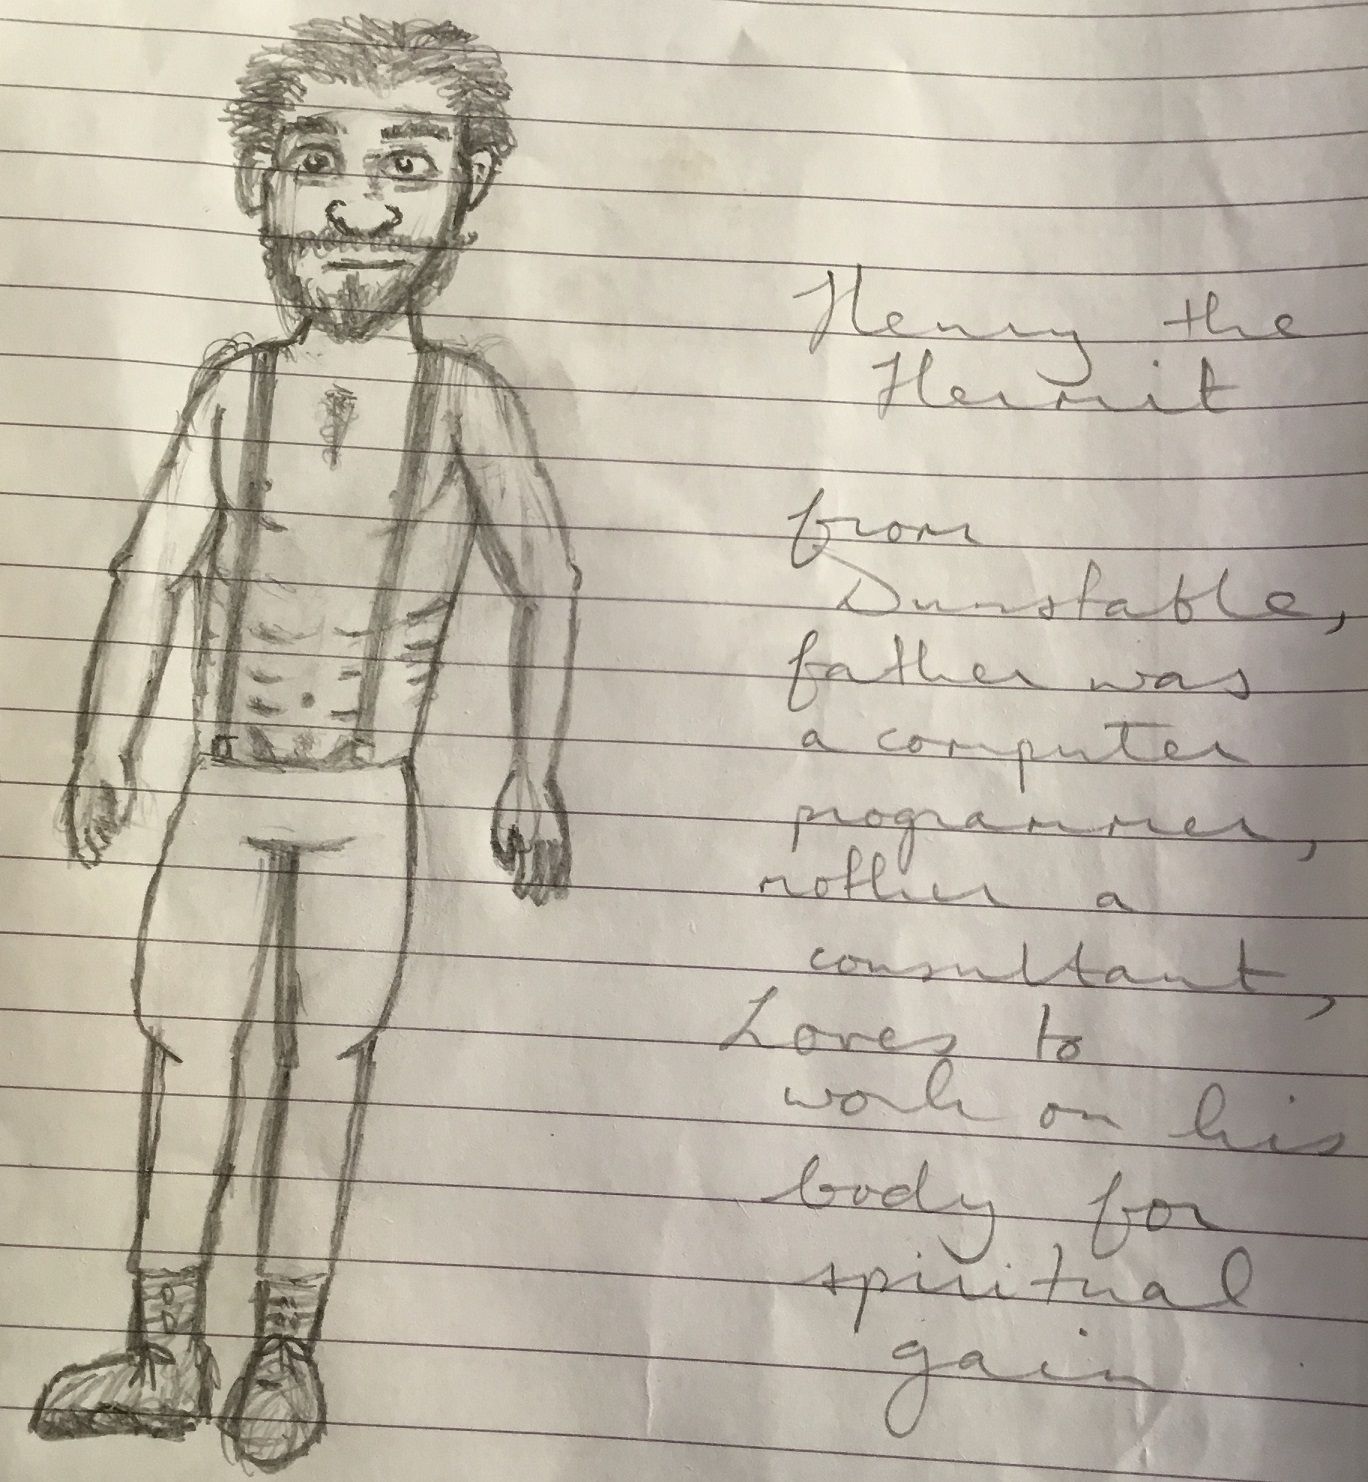 Henry the
Hermit
from
Dunstable,
father was
a computer
programmer,
mother a
consultant,
Loves to
work on his
body for
spiritual
gain